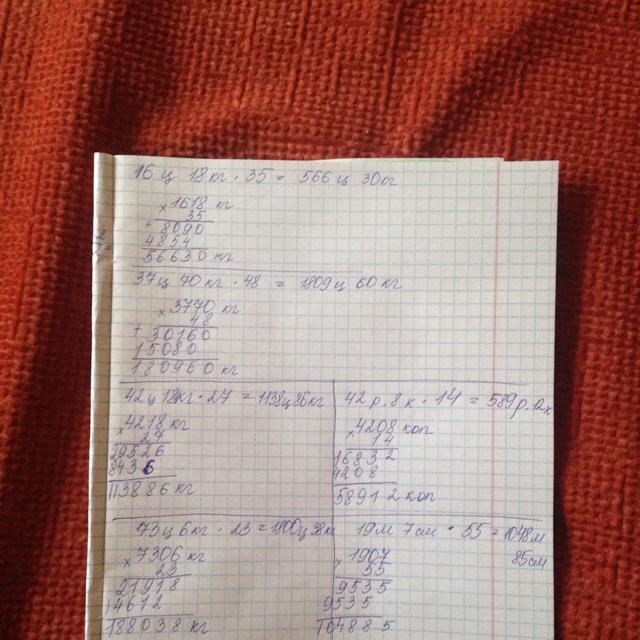 16 ц 18 кг · 35 = 566 ц 30 кг
×1618 кг
35
+8090
4854
56630 кг
37 ц 70 кг · 48 = 1809 ц 60 кг
×3770 кг
48
+30160
15080
180960 кг
42 ц 18 кг · 27 = 1138 ц 86 кг
×4218 кг
27
29526
8436
113886 кг
42 р. 8 к · 14 = 589 р. 12 к
×4208 коп
14
16832
4208
58912 коп
73 ц 6 кг · 23 = 1800 ц 38 кг
×7306 кг
23
21918
14612
188038 кг
19 м 7 см · 55 = 1048 м
85 см
×1907
55
9535
9535
104885